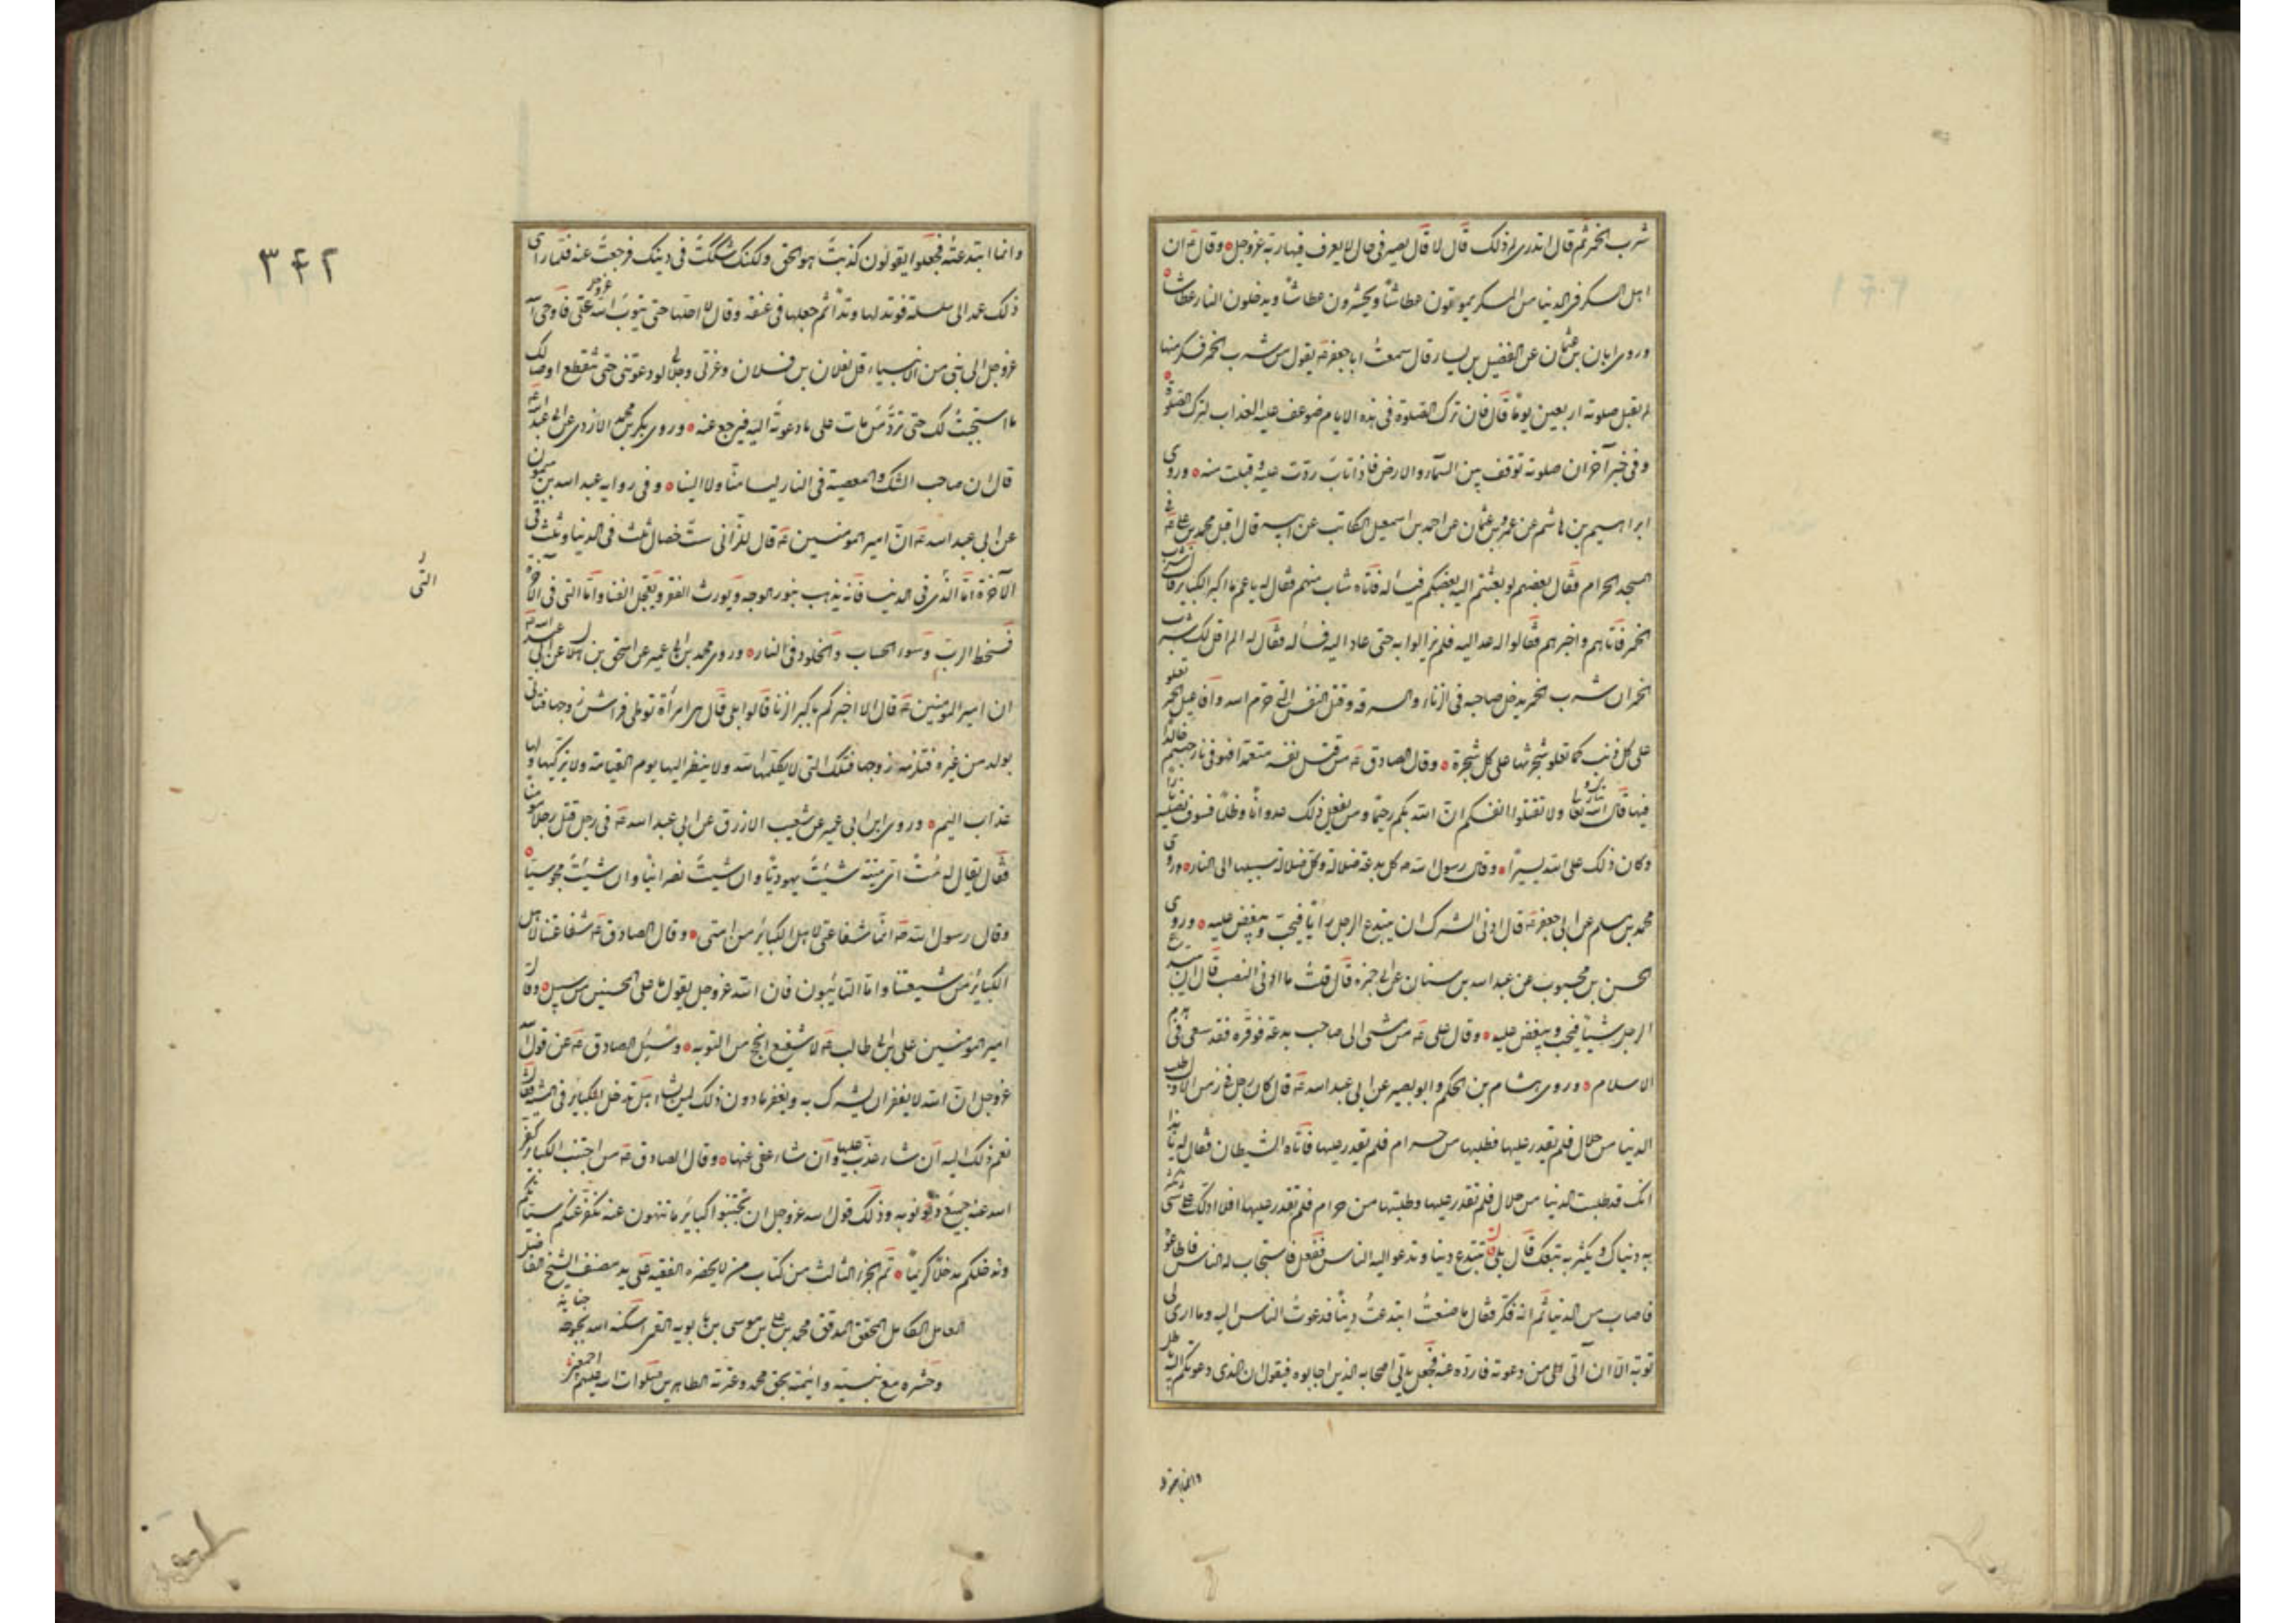 شرب الخمر ثم قال اتدرى لم ذلك قال لا قال يصير فى حال لا يعرف فيها ربه عز وجل وقال ع ان
اهل السكر فى الدنيا من المسكر يموتون عطاشا ويحشرون عطاشا ويدخلون النار عطاشا
وروى ابان بن عثمان عن الفضيل بن يسار قال سمعت ابا جعفر ع يقول من شرب الخمر فسكر منها
لم يقبل صلوته اربعين يوما قال فان ترك الصلوة فى هذه الايام ضوعف عليه العذاب لترك الصلوة
وفى خبر آخر ان صلوته توقف بين السماء والارض فاذا تاب ردت عليه وقبلت منه وروى
ابراهيم بن هاشم عن عمرو بن عثمان عن احمد بن اسمعيل الكاتب عن ابيه قال اقبل محمد بن على ع فى
المسجد الحرام فقال بعضهم لو بعثتم اليه بعضكم فيسأله فاتاه شاب منهم فقال له يا عم ما اكبر الكباير قال شرب
الخمر فاتاهم واخبرهم فقالوا له عد اليه فلم يزالوا به حتى عاد اليه فسأله فقال له الم اقل لك شرب
الخمر ان شرب الخمر يدخل صاحبه فى الزناء والسرقة وقتل النفس التى حرم الله وافاعيل الخمر تعلو
على كل ذنب كما تعلو شجرتها على كل شجرة وقال الصادق ع من قتل نفسه متعمدا فهو فى نار جهنم خالدا
فيها قال الله تبارك وتعالى ولا تقتلوا انفسكم ان الله كان بكم رحيما ومن يفعل ذلك عدوانا وظلما فسوف نصليه نارا
وكان ذلك على الله يسيرا وقال رسول الله ص كل بدعة ضلالة وكل ضلالة سبيلها الى النار وروى
محمد بن مسلم عن ابى جعفر ع قال ادنى الشرك ان يبتدع الرجل رأيا فيحب ويبغض عليه وروى
الحسن بن محبوب عن عبد الله بن سنان عن ابى حمزه قال قلت ما ادنى النصب قال ان يبتدع
الرجل شيئا فيحب ويبغض عليه وقال على ع من مشى الى صاحب بدعة فوقره فقد سعى فى هدم
الاسلام وروى هشام بن الحكم وابو بصير عن ابى عبد الله ع قال كان رجل فى زمن الاول طلب
الدنيا من حلال فلم يقدر عليها فطلبها من حرام فلم يقدر عليها فاتاه الشيطان فقال له يا هذا
انك قد طلبت الدنيا من حلال فلم تقدر عليها وطلبتها من حرام فلم تقدر عليها افلا ادلك على شئ تكثر
به دنياك ويكثر به تبعك قال بلى قال تبتدع دينا وتدعو اليه الناس ففعل فاستجاب له الناس فاطاعوه
فاصاب من الدنيا ثم انه فكر فقال ما صنعت ابتدعت دينا فدعوت الناس اليه وما ارى لى
توبة الا ان آتى الى من دعوته فارده عنه فجعل ياتى اصحابه الذين اجابوه فيقول ان الذى دعوتكم اليه باطل
وانما ابتدعته
وانما ابتدعته فجعلوا يقولون كذبت هو الحق ولكنك شككت فى دينك فرجعت عنه فلما راى
ذلك عمد الى سلسلة فوتد لها وتدا ثم جعلها فى عنقه وقال لا احلها حتى يتوب الله عز وجل على فاوحى الله
عز وجل الى نبى من الانبياء قل لفلان بن فلان وعزتى وجلالى لو دعوتنى حتى تنقطع اوصالك
ما استجبت لك حتى ترد من مات على ما دعوته اليه فيرجع عنه وروى بكر بن محمد الازدى عن ابى عبد الله ع
قال ان صاحب الشك والمعصية فى النار ليسا منا ولا الينا وفى رواية عبد الله بن ميمون
عن ابى عبد الله ع ان امير المؤمنين ع قال للزانى ست خصال ثلث فى الدنيا وثلث فى
الآخرة اما الذى فى الدنيا فانه يذهب بنور الوجه ويورث الفقر ويعجل الفنا واما التى فى الآخرة
فسخط الرب وسوء الحساب والخلود فى النار وروى محمد بن ابى عمير عن اسحق بن هلال عن ابى عبد الله ع
ان امير المؤمنين ع قال الا اخبركم باكبر الزنا قالوا بلى قال هى امرأة توطى فراش زوجها فتاتى
بولد من غيره فتلزمه زوجها فتلك التى لا يكلمها الله ولا ينظر اليها يوم القيامة ولا يزكيها ولها
عذاب اليم وروى ابن ابى عمير عن شعيب الازرق عن ابى عبد الله ع فى رجل قتل رجلا مؤمنا
فقال يقال له مت اى ميتة شئت يهوديا وان شئت نصرانيا وان شئت مجوسيا
وقال رسول الله ص انما شفاعتى لاهل الكبائر من امتى وقال الصادق ع شفاعتنا لاهل
الكبائر من شيعتنا واما التائبون فان الله عز وجل يقول ما على المحسنين من سبيل وقال
امير المؤمنين على بن ابى طالب ع لا شفيع انجح من التوبه وسئل الصادق ع عن قول الله
عز وجل ان الله لا يغفر ان يشرك به ويغفر ما دون ذلك لمن يشاء هل تدخل الكبائر فى المشية فقال
نعم ذلك اليه ان شاء عذب عليها وان شاء عفى عنها وقال الصادق ع من اجتنب الكبائر كفر
الله عنه جميع ذنوبه وذلك قول الله عز وجل ان تجتنبوا كبائر ما تنهون عنه نكفر عنكم سيئاتكم
وندخلكم مدخلا كريما تم الجزء الثالث من كتاب من لا يحضره الفقيه على يد مصنفه الشيخ الفاضل
العامل الكامل المحقق المدقق محمد بن على بن موسى بن بابويه القمى اسكنه الله بحبوحة جنانه
وحشره مع نبيه وائمته بحق محمد وعترته الطاهرين صلوات الله عليهم اجمعين
التى
٣۴٢